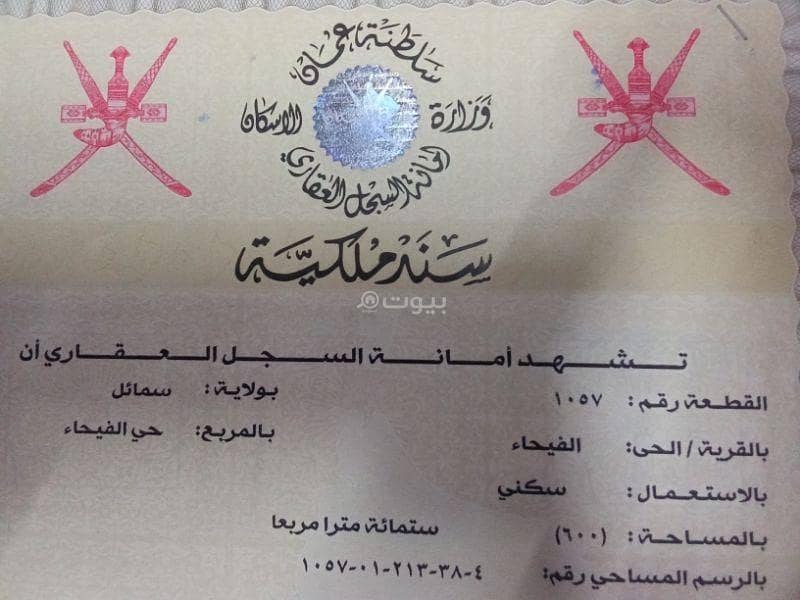 سلطنة عمان
وزارة الاسكان
امانة السجل العقاري
سند ملكية
بيوت
تشهد أمانة السجل العقاري أن
القطعة رقم: ١٠٥٧ بولاية: سمائل
بالقرية / الحى: الفيحاء بالمربع: حي الفيحاء
بالاستعمال: سكني
بالمساحة: (٦٠٠) ستمائة مترا مربعا
بالرسم المساحي رقم: ١٠٥٧-٠١-٢١٣-٣٨-٤